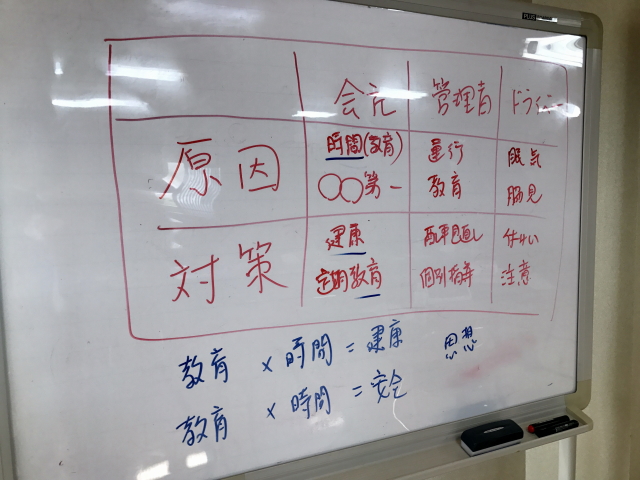 会社 管理者 ドライバー
原因 時間(教育) 運行 眠気
〇〇第一 教育 脇見
対策 健康
定期教育 個別指導 注意
教育 × 時間 = 健康 思想
教育 × 時間 = 安全